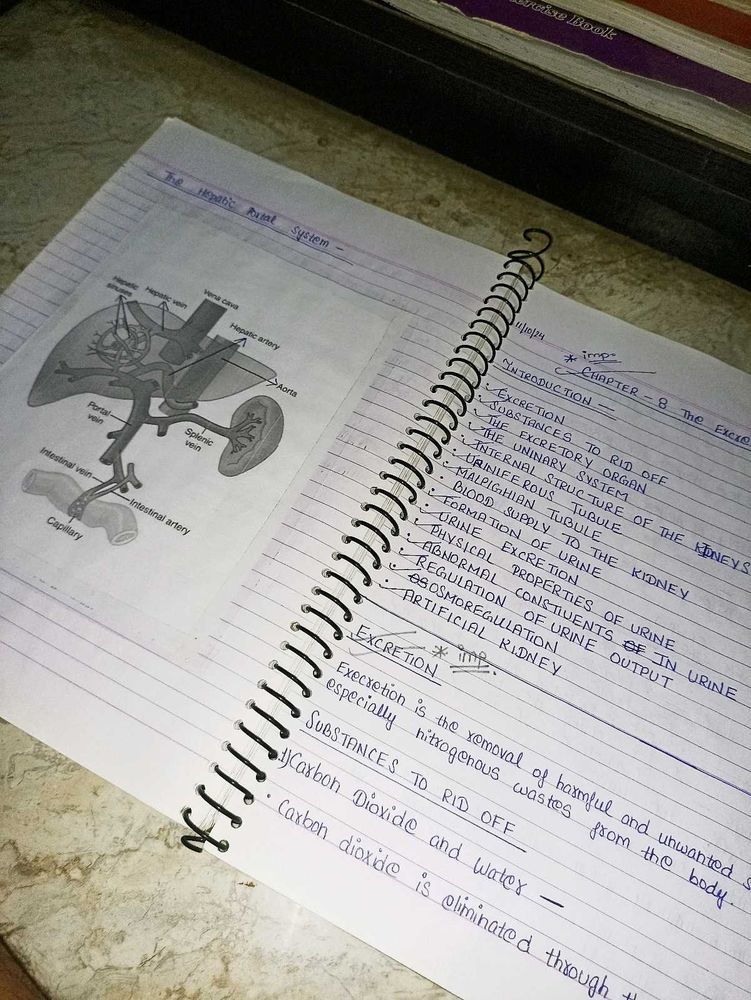 ercise Book
The Hepatic Portal System -
Hepatic sinuses
Hepatic vein
Vena cava
Hepatic artery
Aorta
Portal vein
Splenic vein
Intestinal vein
Intestinal artery
Capillary
11/10/24
* imp.
CHAPTER - 8 The Excre
INTRODUCTION -
EXCRETION
SUBSTANCES TO RID OFF
THE EXCRETORY ORGAN
THE UNINARY SYSTEM
INTERNAL STRUCTURE OF THE KIDNEYS
URINIFEROUS TUBULE
MALPIGHIAN TUBULE
BLOOD SUPPLY TO THE KIDNEY
FORMATION OF URINE
URINE EXCRETION
PHYSICAL PROPERTIES OF URINE
ABNORMAL CONSTIUENTS OF IN URINE
REGULATION OF URINE OUTPUT
OSMOREGULATION
ARTIFICIAL KIDNEY
EXCRETION * imp.
Execretion is the removal of harmful and unwanted s
especially nitrogenous wastes from the body.
SUBSTANCES TO RID OFF
1) Carbon Dioxide and Water -
• Carbon dioxide is eliminated through th